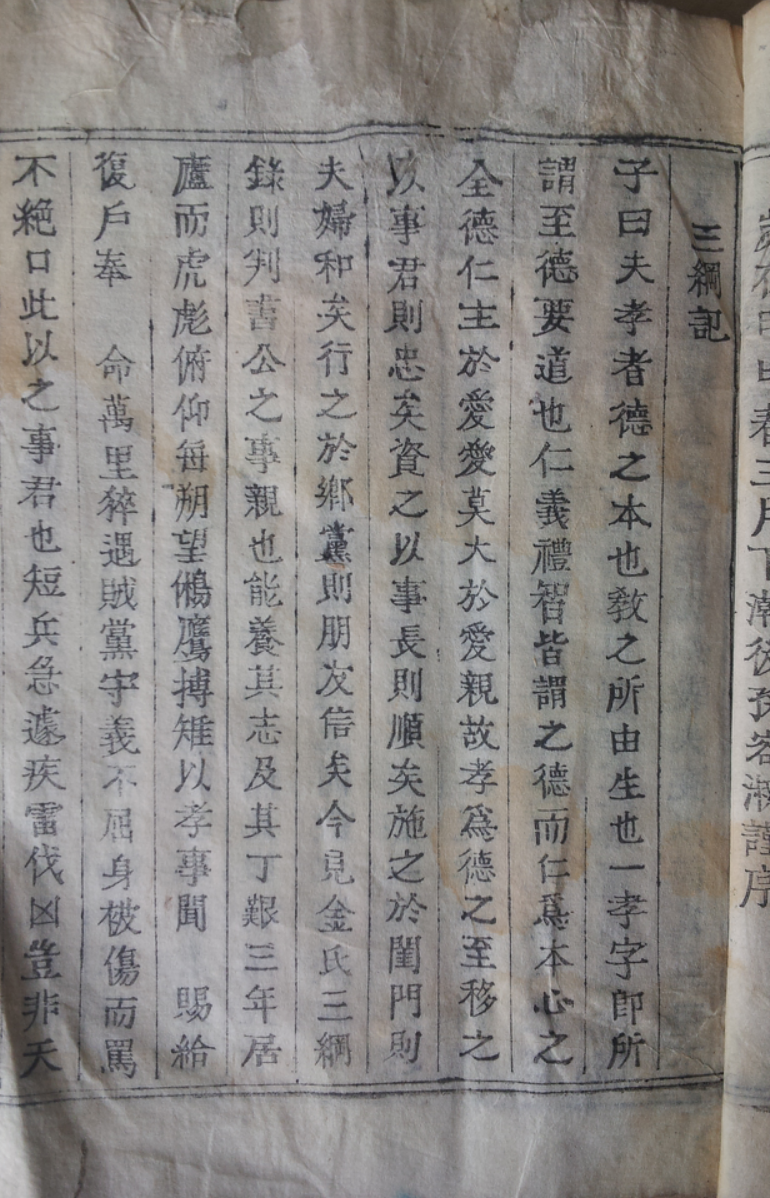 三綱記
子曰夫孝者德之本也敎之所由生也一孝字卽所
謂至德要道也仁義禮智皆謂之德而仁爲本心之
全德仁主於愛愛莫大於愛親故孝爲德之至移之
以事君則忠矣資之以事長則順矣施之於閨門則
夫婦和矣行之於鄕黨則朋友信矣今見金氏三綱
錄則判書公之事親也能養其志及其丁艱三年居
廬而虎彪俯仰每朔望鵂鷹搏雉以孝事聞 賜給
復戶奉 命萬里猝遇賊黨守義不屈身被傷而罵
不絶口此以之事君也短兵急遽疾雷伐凶豈非天